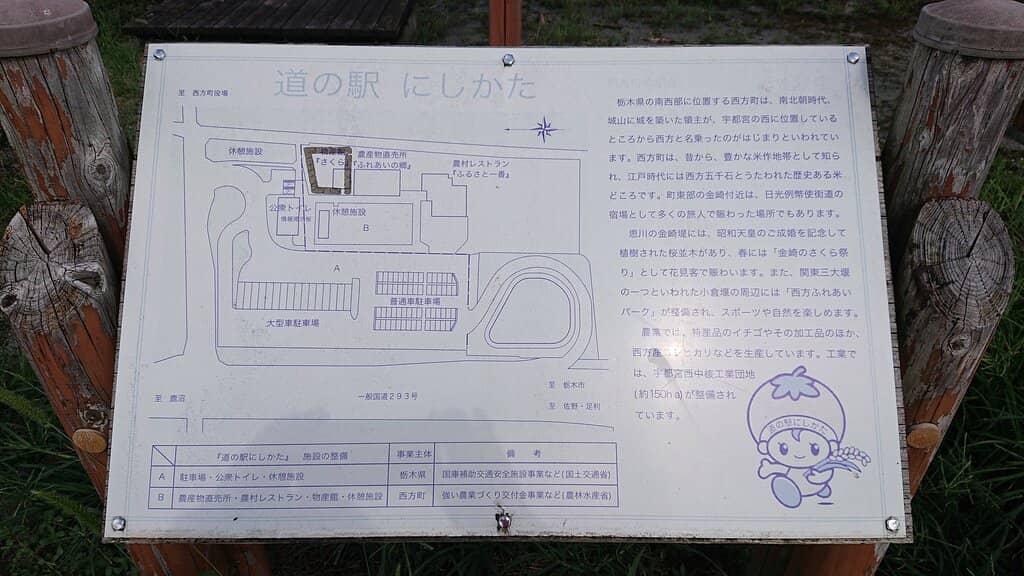 道の駅 にしかた
至 西方町役場
休憩施設
『さくら
農産物直売所
『ふれあいの郷』
農村レストラン
『ふるさと一番』
公衆トイレ
休憩施設
B
A
普通車駐車場
大型車駐車場
至 鹿沼
一般国道293号
至 栃木市
至 佐野・足利
『道の駅にしかた』 施設の整備
事業主体
備 考
A
駐車場・公衆トイレ・休憩施設
栃木県
国庫補助交通安全施設事業など(国土交通省)
B
農産物直売所・農村レストラン・物産館・休憩施設
西方町
強い農業づくり交付金事業など(農林水産省)
栃木県の南西部に位置する西方町は、南北朝時代、
城山に城を築いた領主が、宇都宮の西に位置している
ところから西方と名乗ったのがはじまりといわれてい
ます。西方町は、昔から、豊かな米作地帯として知ら
れ、江戸時代には西方五千石とうたわれた歴史ある米
どころです。町東部の金崎付近は、日光例幣使街道の
宿場として多くの旅人で賑わった場所でもあります。
思川の金崎堤には、昭和天皇のご成婚を記念して
植樹された桜並木があり、春には「金崎のさくら祭
り」として花見客で賑わいます。また、関東三大堰
の一つといわれた小倉堰の周辺には「西方ふれあい
パーク」が整備され、スポーツや自然を楽しめます。
農業では、特産品のイチゴやその加工品のほか、
西方産コシヒカリなどを生産しています。工業で
は、宇都宮西中核工業団地
(約150ha)が整備され
ています。
道の駅にしかた